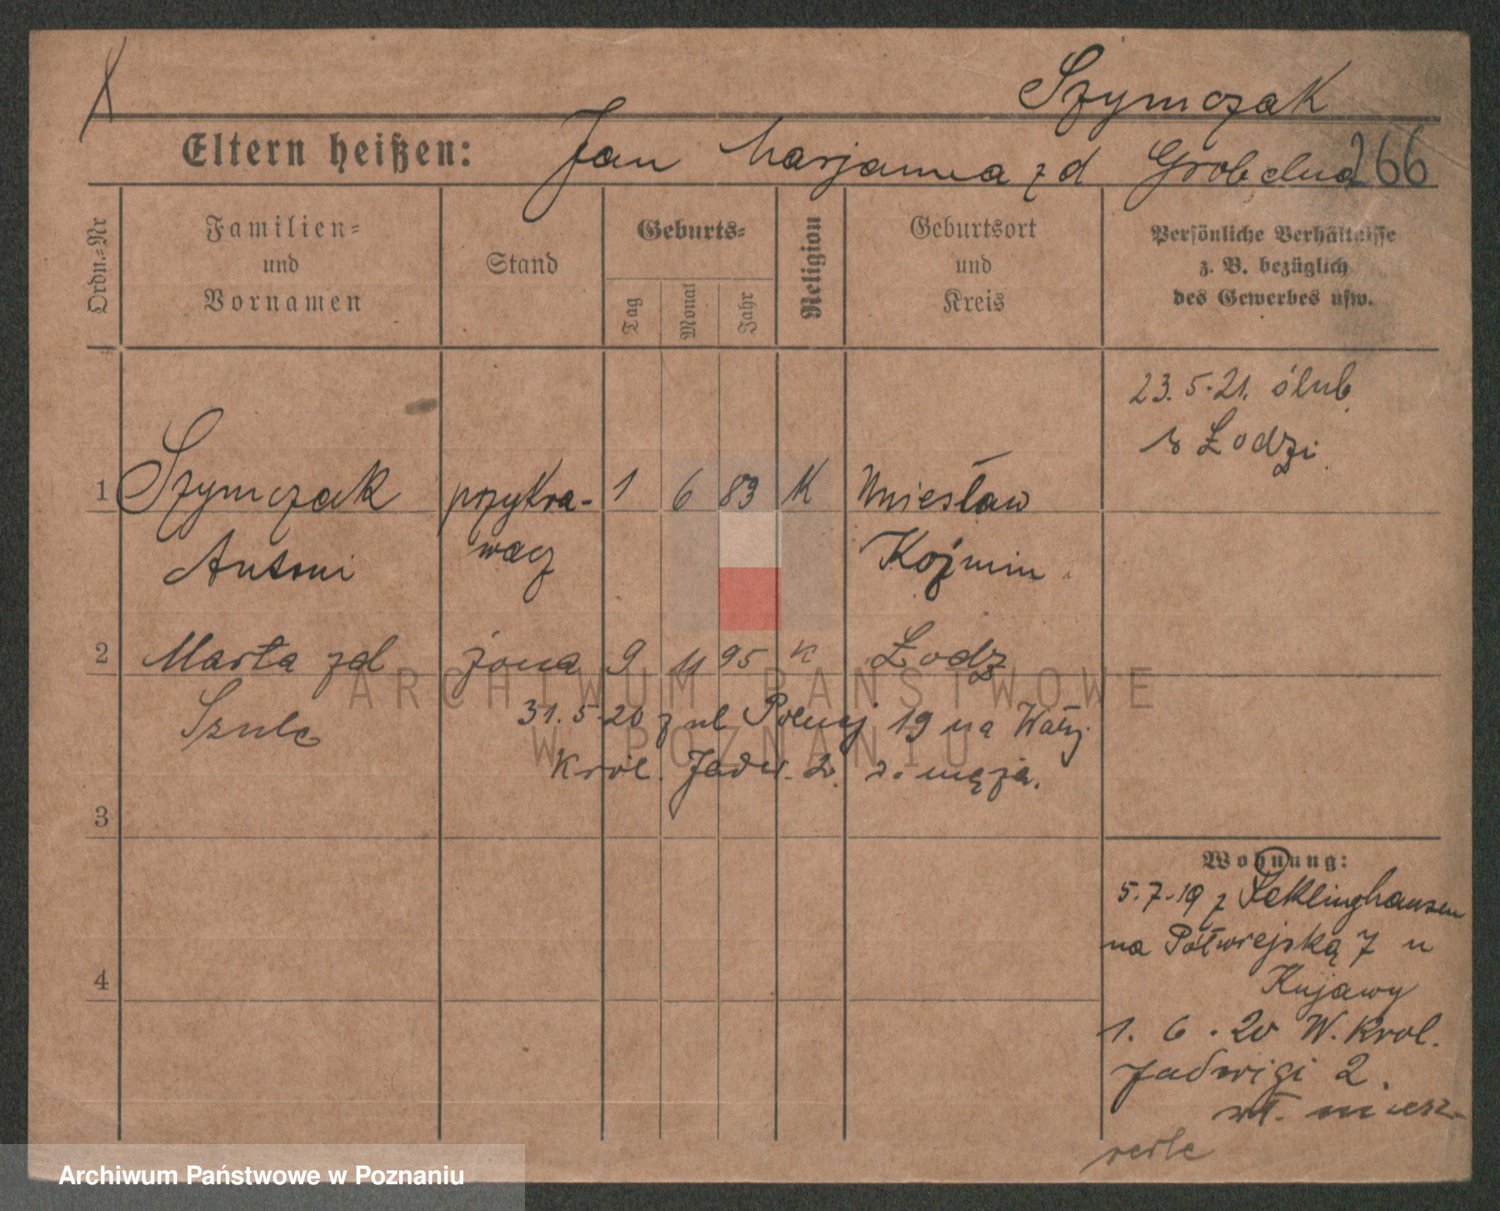 Szymczak
Eltern heißen: Jan Marjanna z d Grobelna 266
Ordn.-Nr
Familien-
und
Vornamen
Stand
Geburts-
Tag
Monat
Jahr
Religion
Geburtsort
und
Kreis
Persönliche Verhältnisse
z. B. bezüglich
des Gewerbes usw.
23. 5. 21. ślub
w Łodzi.
1 Szymczak przykra- 1 6 83 K
Antoni wacz Koźmin.
2 Marta zd żona 9 11 95 K Łodz
Szulc 31. 5. 20 z ul 19 na
Król. Jadw. 2. męża.
3
Wohnung:
5. 7. 19 z
na Półwiejską 7 u
Kujawy
4
1. 6. 20 W. Krol.
Jadwigi 2.
ARCHIWUM PAŃSTWOWE
W POZNANIU
Archiwum Państwowe w Poznaniu